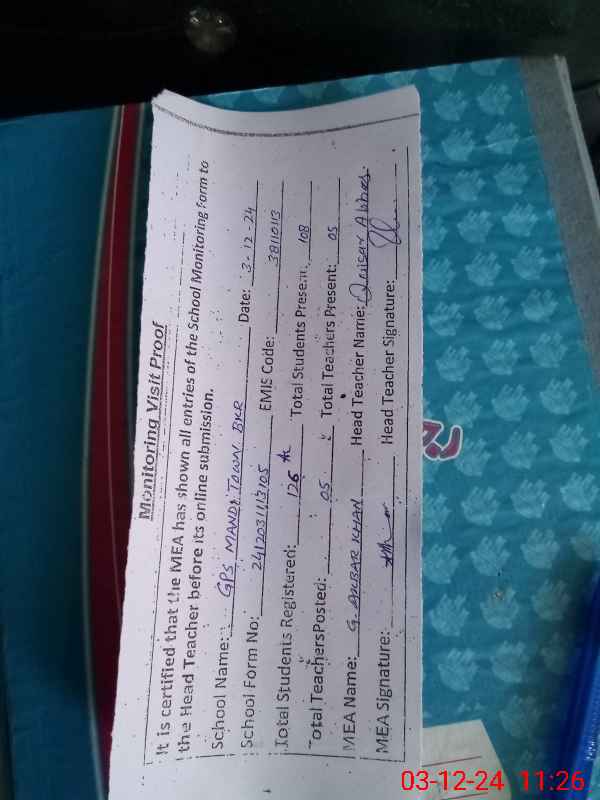 Monitoring Visit Proof
It is certified that the MEA has shown all entries of the School Monitoring Form to
the Head Teacher before its online submission.
School Name: GPS MANDI TOWN BKR Date: 3-12-24
School Form No: 2412031113105 EMIS Code: 38110113
Total Students Registered: 126 Total Students Present: 108
Total Teachers Posted: 05 Total Teachers Present: 05
MEA Name: G. AKBAR KHAN Head Teacher Name: Qaisar Abbas
MEA Signature: Head Teacher Signature:
03-12-24 11:26